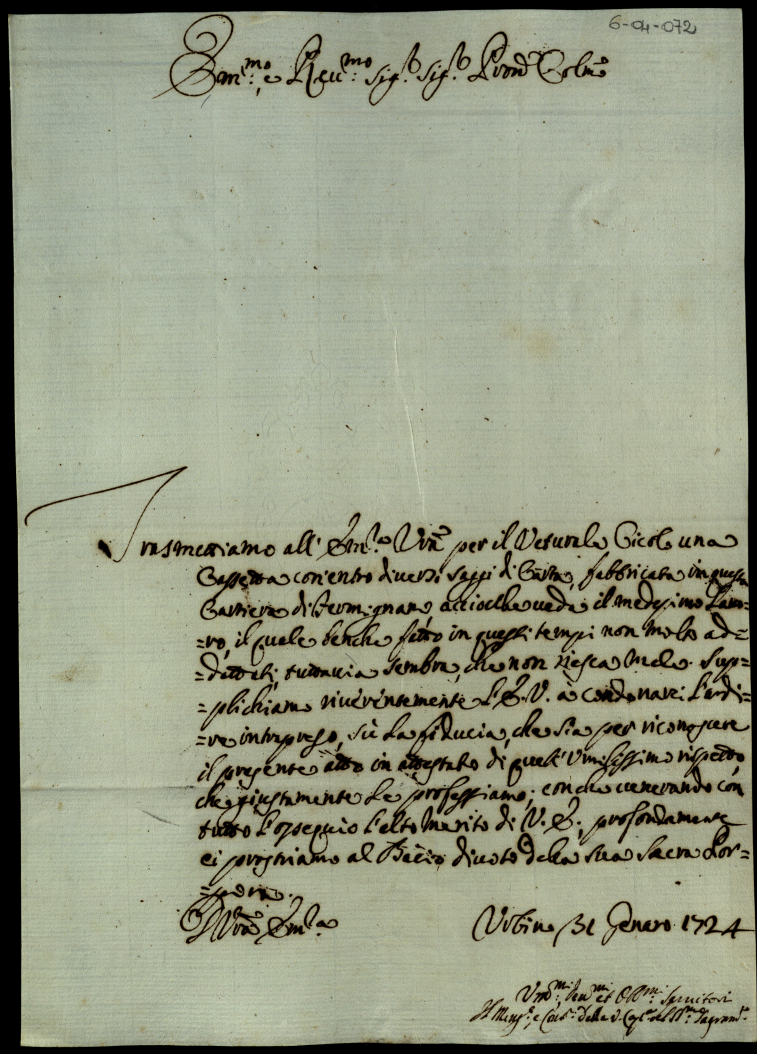 6-04-072
Em.mo e Rev.mo Sig.r Sig.r Pron Colmo
Trasmettiamo all' Em.za Vra per il Veturale Cicolo una
Cassetta con entro diversi saggi di Carta, fabbricata in questa
Cartiera di Fermignano, acciocche veda il medesimo Lavo=
=ro, il quale benche fatto in questi tempi non molto ad=
=dattati, tuttavia sembra, che non riesca male. Sup=
=plichiamo riverentemente l'E.V. à condonarci l'ardi=
=re intrapreso, sù la fiducia, che sia per riconoscere
il presente atto in attestato di quell'Umilissimo rispetto,
che giustamente Le professiamo; con che venerando con
tutto l'ossequio l'alto Merito di V.E., profondamente
ci prostriamo al Bacio divoto della sua Sacra Por=
=pora.
D Vra Em.za
Urbino 31 Genaro 1724
Servitori